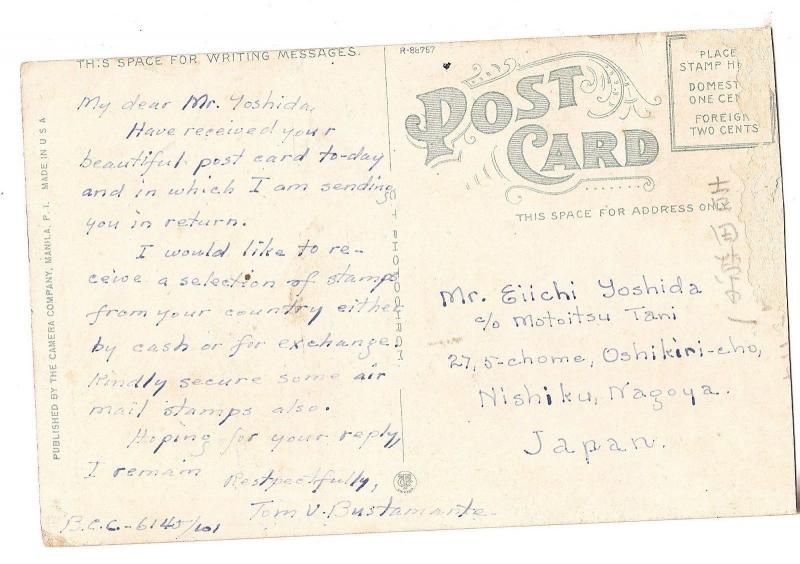 THIS SPACE FOR WRITING MESSAGES.
My dear Mr. Yoshida,
Have received your
beautiful post card to-day
and in which I am sending
you in return.
I would like to re-
ceive a selection of stamps
from your country either
by cash or for exchange.
Kindly secure some air
mail stamps also.
Hoping for your reply,
I remain
Respectfully,
Tom V. Bustamante.
B.C.C.-6145/101
PUBLISHED BY THE CAMERA COMPANY, MANILA, P. I. MADE IN U S A
C T PHOTOCHROM
R-86757
POST CARD
PLACE
STAMP HE
DOMEST
ONE CEN
FOREIGN
TWO CENTS
THIS SPACE FOR ADDRESS ONLY
Mr. Eiichi Yoshida
c/o Motoitsu Tani
27, 5-chome, Oshikiri-cho,
Nishiku, Nagoya.
Japan.